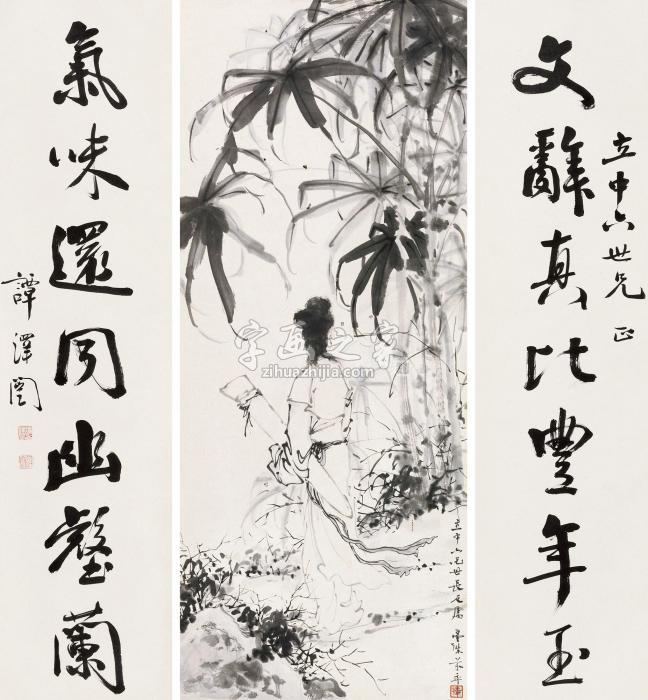 文辭真比豐年玉
立中六世兄 正
氣味還同幽壑蘭
譚澤闓
立中六兄世長之屬
字画之家
zihuazhijia.com